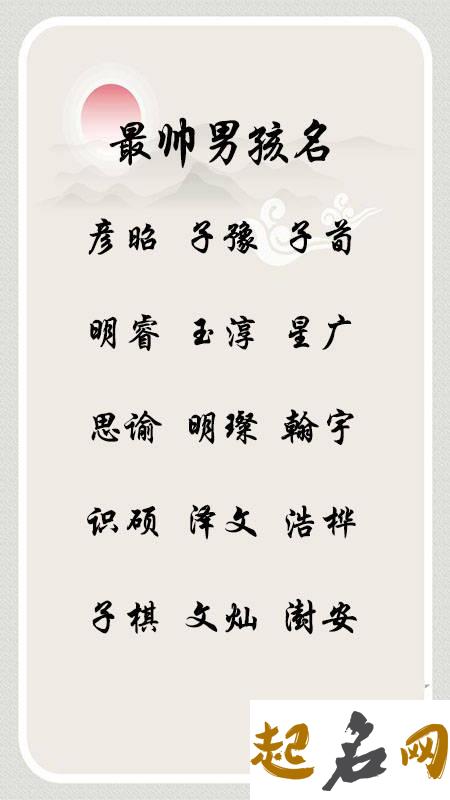 最帅男孩名
彦昭 子豫 子荀
明睿 玉淳 星广
思谕 明璨 翰宇
识硕 泽文 浩桦
子棋 文灿 澍安
起名网